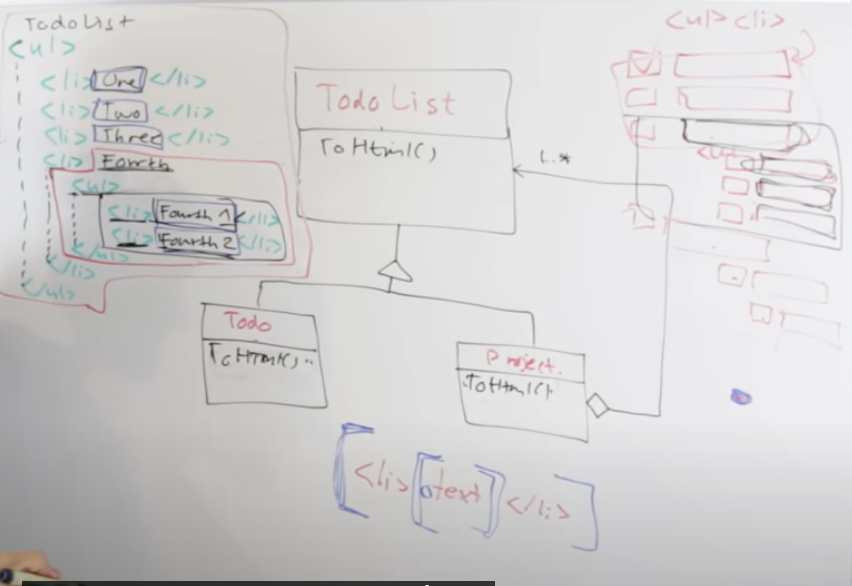 TodoList
<ul>
<li> One </li>
<li> Two </li>
<li> Three </li>
<li> Fourth
<ul>
<li> Fourth 1 </li>
<li> Fourth 2 </li>
</ul>
</li>
</ul>
Todo List
ToHtml()
1..*
Todo
ToHtml()..
Project.
ToHtml()
<li> text </li>
<ul> <li>
<ul>